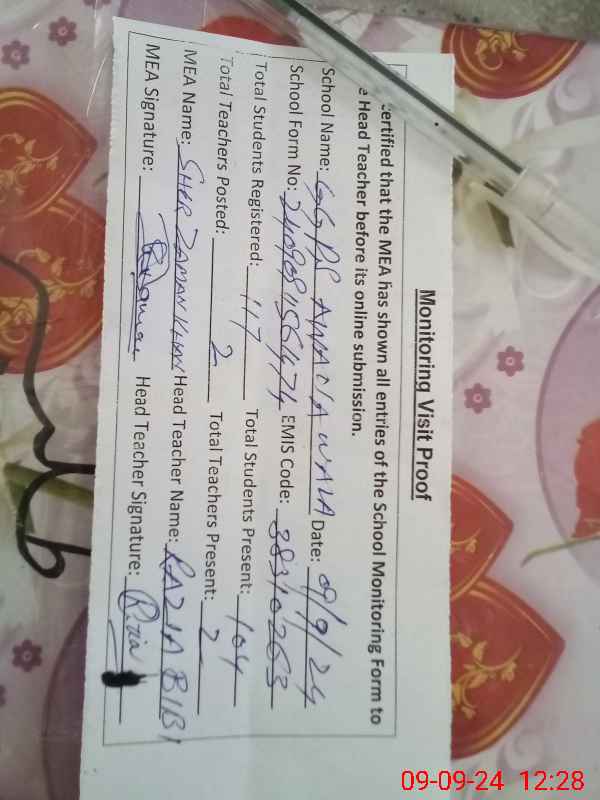 Monitoring Visit Proof
certified that the MEA has shown all entries of the School Monitoring Form to
e Head Teacher before its online submission.
School Name: GGPS AWALIA WALA Date: 09/9/24
School Form No: EMIS Code: 38310263
Total Students Registered: 117 Total Students Present: 104
Total Teachers Posted: 2 Total Teachers Present: 2
MEA Name: SHER ZAMAN KHAN Head Teacher Name: RAZIA BIBI
MEA Signature: Head Teacher Signature: Razia
09-09-24 12:28